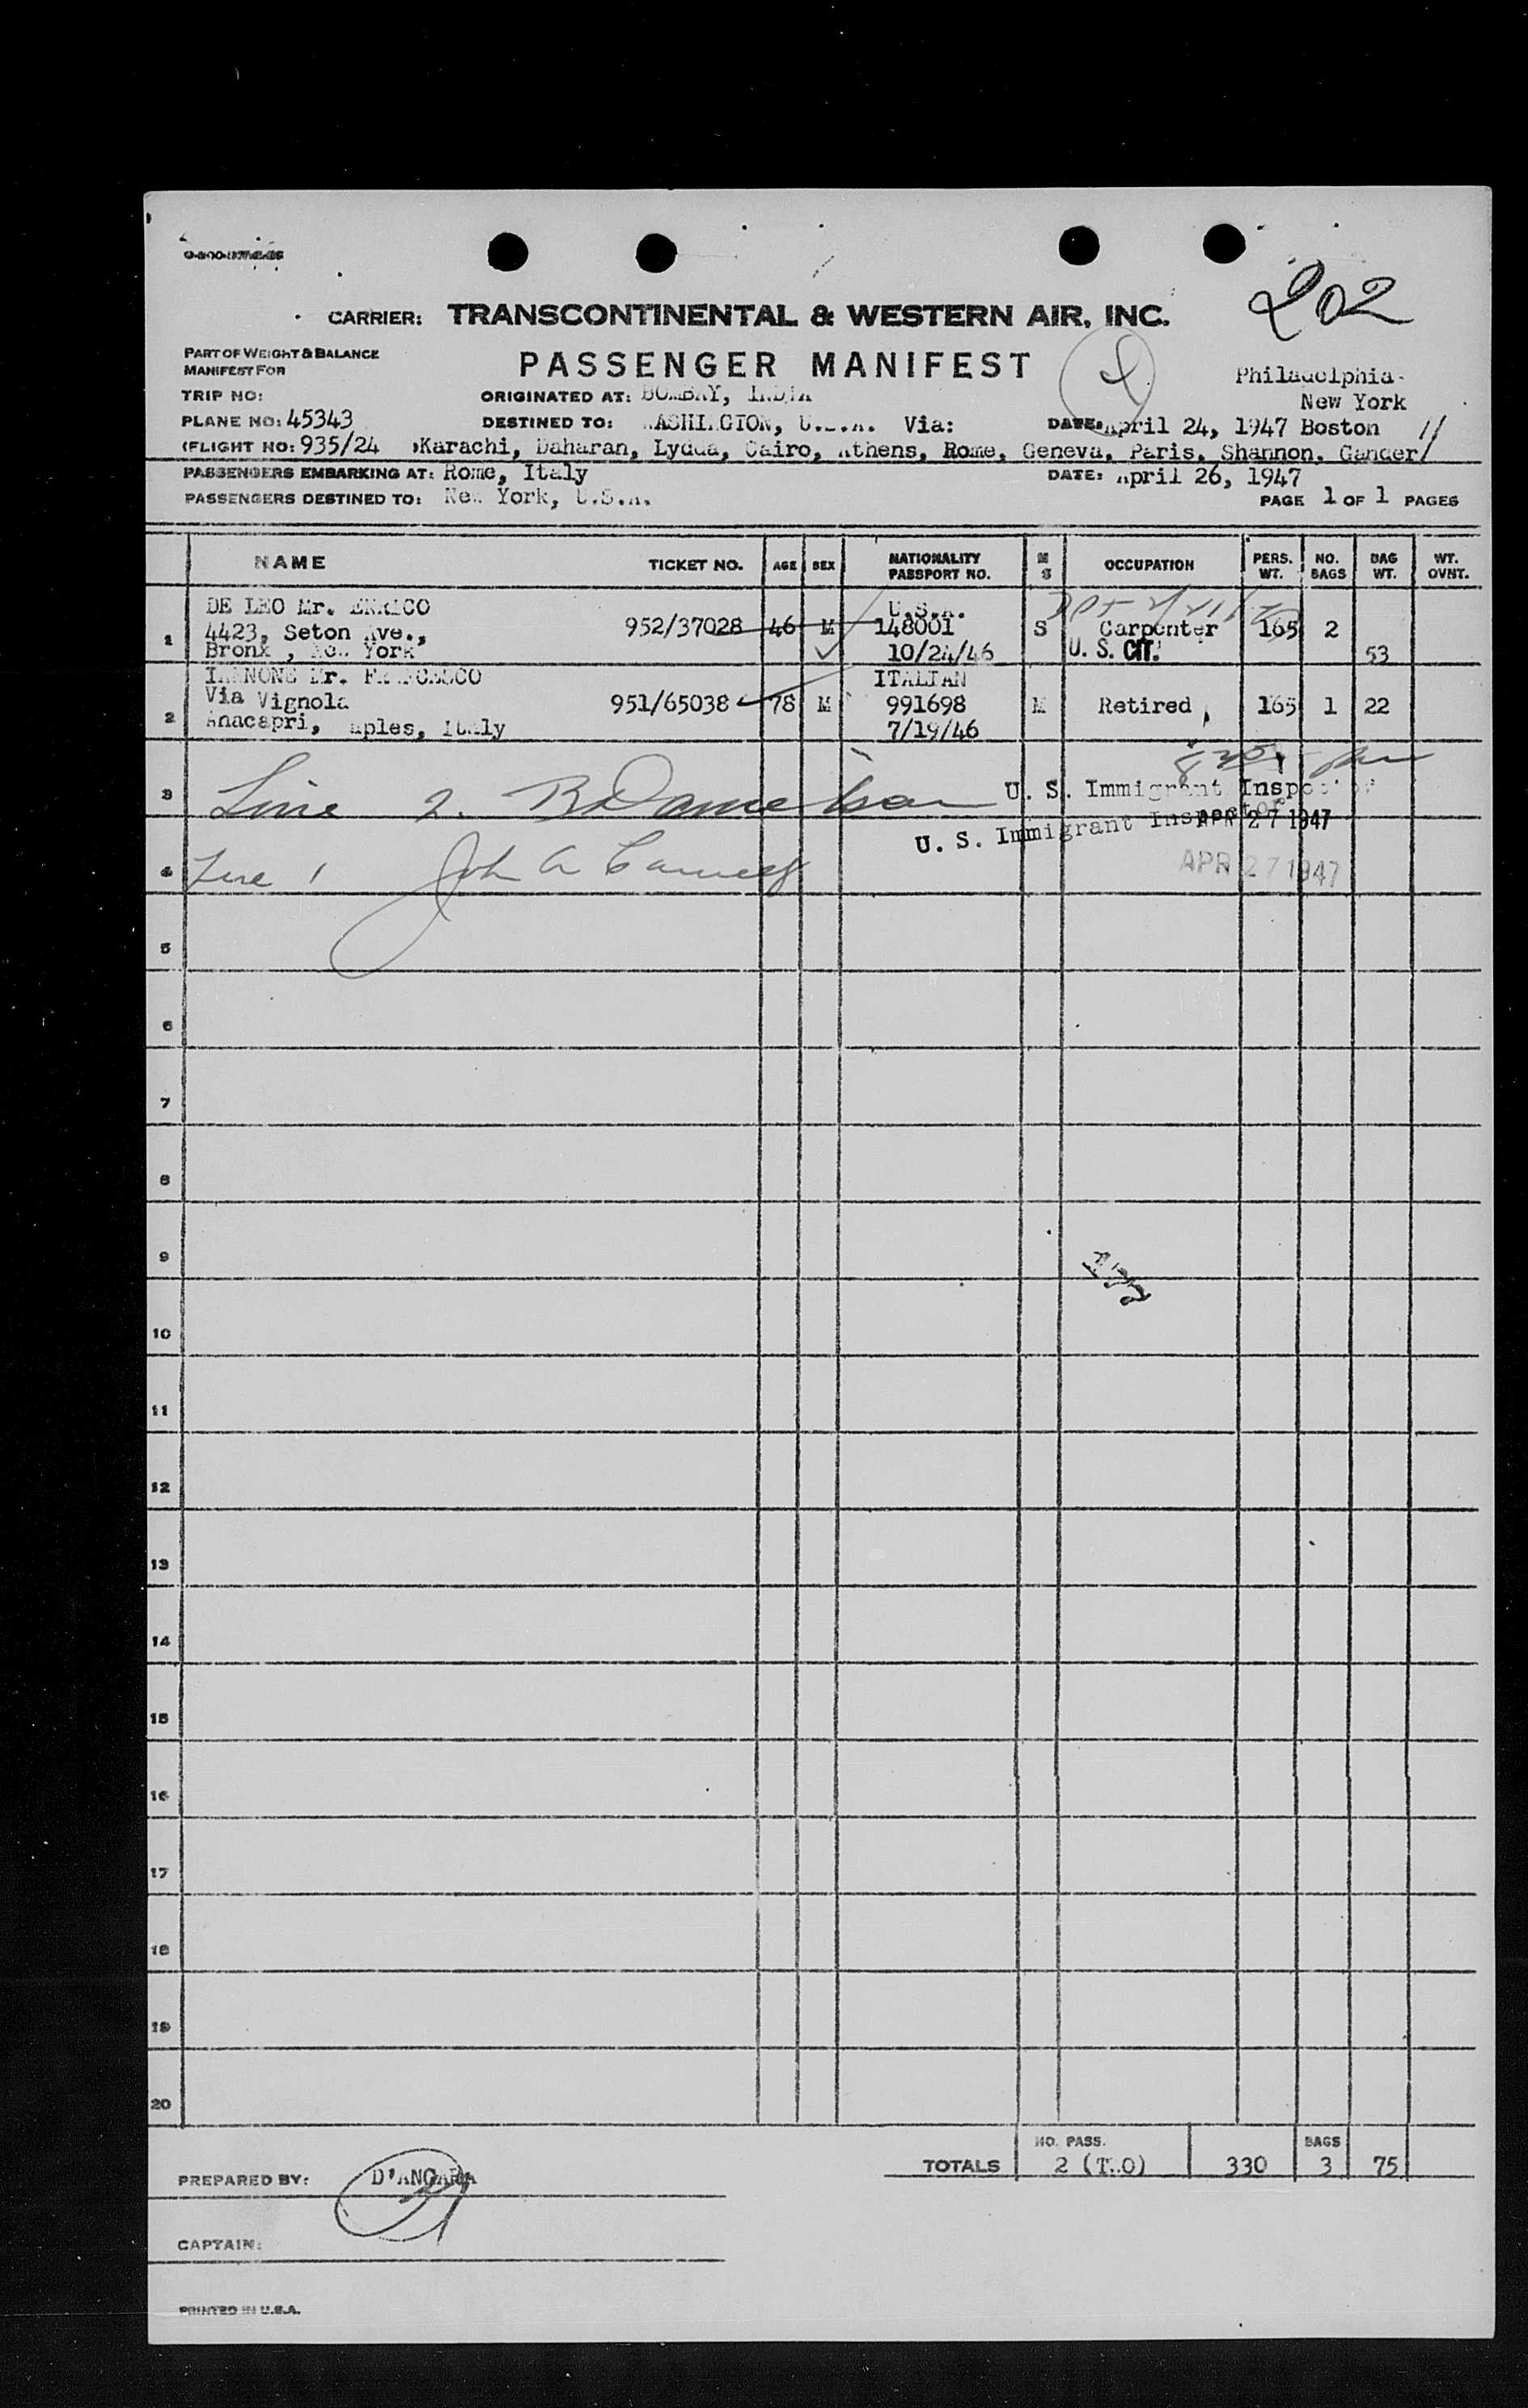 202
CARRIER: TRANSCONTINENTAL & WESTERN AIR, INC.
PART OF WEIGHT & BALANCE
MANIFEST FOR
PASSENGER MANIFEST
Philadelphia-
New York
TRIP NO:
ORIGINATED AT: BOMBAY, INDIA
PLANE NO: 45343
DESTINED TO: WASHINGTON, U.S.A. Via:
DATE: April 24, 1947 Boston
(FLIGHT NO: 935/24 Karachi, Daharan, Lydda, Cairo, Athens, Rome, Geneva, Paris, Shannon, Gander/
PASSENGERS EMBARKING AT: Rome, Italy DATE: April 26, 1947
PASSENGERS DESTINED TO: New York, U.S.A. PAGE 1 OF 1 PAGES
NAME TICKET NO. AGE SEX NATIONALITY PASSPORT NO. M S OCCUPATION PERS. WT. NO. BAGS BAG WT. WT. OVNT.
DE LEO Mr. ENRICO U.S.A.
1 4423, Seton Ave., 952/37028 46 M 148001 S Carpenter 165 2
Bronx , New York 10/24/46 U. S. CIT. 53
IANNONE Mr. FRANCESCO ITALIAN
Via Vignola 951/65038 78 M 991698 M Retired 165 1 22
2 Anacapri, Naples, Italy 7/19/46
3 Line 2. U. S. Immigrant Inspector
U. S. Immigrant Inspector APR 27 1947
4 Line 1 John A
APR 27 1947
5
6
7
8
9
10
11
12
13
14
15
16
17
18
19
20
NO. PASS. BAGS
TOTALS 2 (TWO) 330 3 75
PREPARED BY: D'ANGARA
CAPTAIN:
PRINTED IN U.S.A.